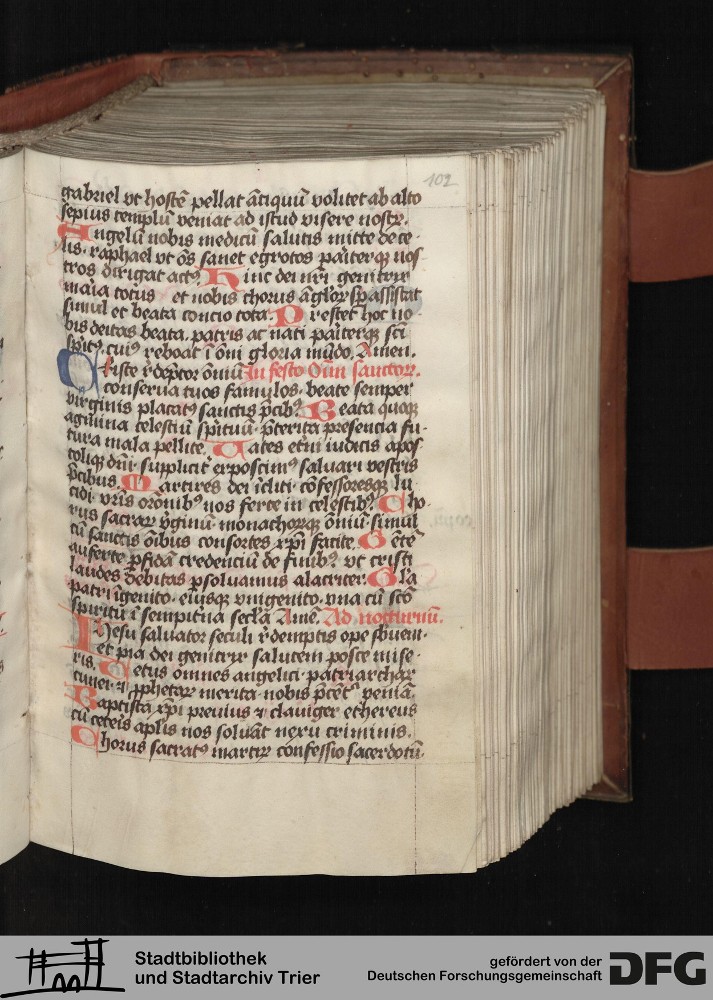 102
gabriel vt hostē pellat ātiquū volitet ab alto
sepius templū veniat ad istud visere nostꝝ.
Angelū nobis medicū salutis mitte de ce-
lis. raphael vt oēs sanet egrotos pariterqꝫ nos
tros dirigat actꝰ. Hinc dei nr̄i genitrix
maria totus et nobis chorus āgloꝝ sp̄ assistat
simul et beata concio tota. Prestet hoc no
bis deitas beata. patris ac nati pariterqꝫ sci
spirꝰ. cuiꝰ reboat ī oni gloria mūdo. Amen.
Criste rˀdeptor oniū In festo Oim̄ sanctoꝝ.
conserua tuos famulos. beate semper
virginis placatꝰ sanctis p̄cibꝰ. Beata quoqꝫ
agmina celestiū sp̄ituū. p̄terita presencia fu-
tura mala pellite. Uates eterni iudicis apos
toliqꝫ dn̄i. suppliciter exposcimꝰ saluari vestris
p̄cibus. Martires dei īcliti ꝯfessoresqꝫ lu
cidi. vr̄is or̄onibꝰ nos ferte in celestibꝰ. Cho
rus sacraꝝ v̄ginū. monachoꝝqꝫ om̄iū. simul
cū sanctis oībus consortes xp̄i facite. Gētē
auferte ꝑfidā credenciū de finibꝰ. vt cristi
laudes debitas ꝑsoluamus alacriter. Gl̄a
patri īgenito. eiusqꝫ vnigenito. vna cū sc̄o
spiritu ī sempiterna secl̄a Amē. Ad nocturnū.
Ihesu saluator seculi rˀdemptis ope sbueni-
et pia dei genitrix salutem posce mise-
ris. Cetus omnes angelici. patriarchaꝝ
cunei. ⁊ ꝓphetaꝝ merita. nobis p̄cēt̉ veniā.
Baptista xp̄i preuius ⁊ clauiger ethereus
cū ceteis apl̄is nos soluāt nexu criminis.
Chorus sacratꝰ martiꝝ confessio sacerdotū.
Stadtbibliothek
und Stadtarchiv Trier
gefördert von der
Deutschen Forschungsgemeinschaft
DFG